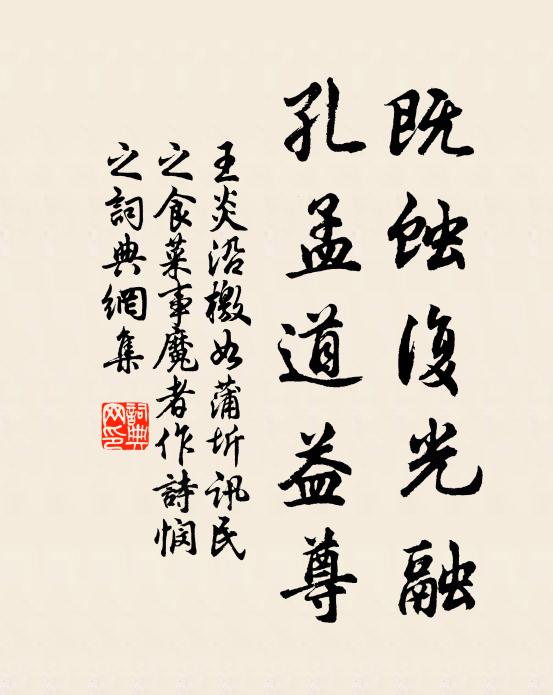 既蚀復光融
孔孟道益尊
王炎沿檄如蒲圻訊民
之食菜事魔者作詩憫
之詞典網集
詞典
网印